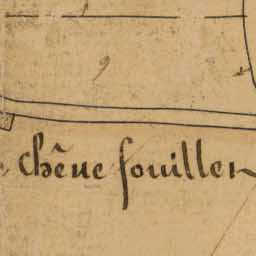 9
chêne fouiller